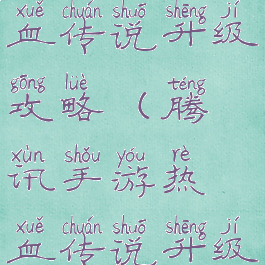 xuě chuán shuō shēng jí
血传说升级
gōng lüè téng
攻略（腾
xùn shǒu yóu rè
讯手游热
xuě chuán shuō shēng jí
血传说升级